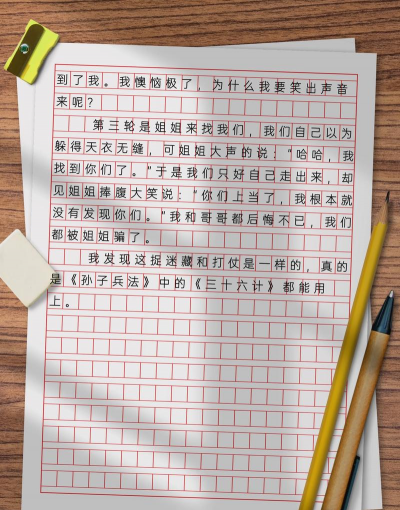 到了我。我懊恼极了,为什么我要笑出声音
来呢?
第三轮是姐姐来找我们,我们自己以为
躲得天衣无缝,可姐姐大声的说:“哈哈,我
找到你们了。”于是我们只好自己走出来,却
见姐姐捧腹大笑说:“你们上当了,我根本就
没有发现你们。”我和哥哥都后悔不已,我们
都被姐姐骗了。
我发现这捉迷藏和打仗是一样的,真的
是《孙子兵法》中的《三十六计》都能用
上。